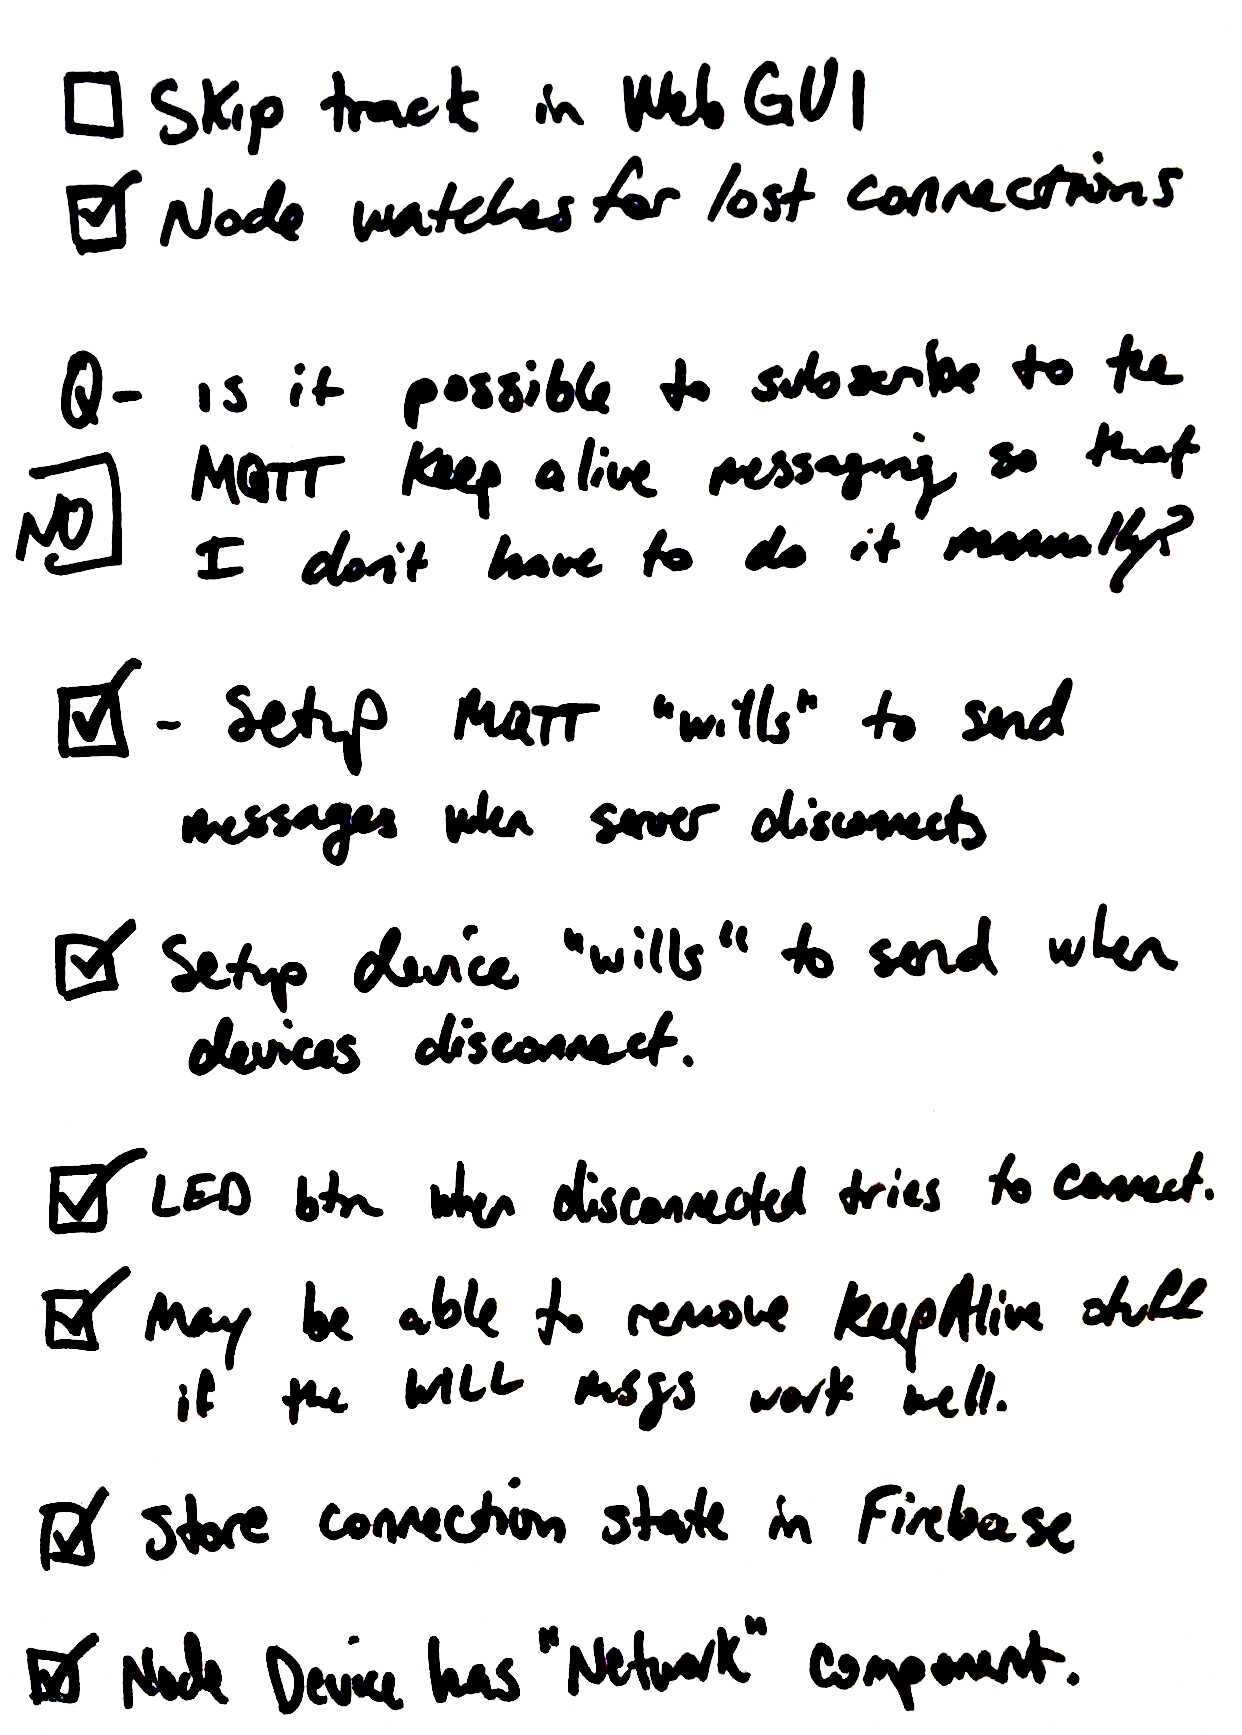 ☐ Skip track in Web GUI
☑ Node watches for lost connections
Q- is it possible to subscribe to the
NO MQTT keep alive messaging so that
I don't have to do it manually?
☑ - Setup MQTT "wills" to send
messages when server disconnects
☑ Setup device "wills" to send when
devices disconnect.
☑ LED btn when disconnected tries to connect.
☑ May be able to remove keepAlive stuff
if the WILL msgs work well.
☑ Store connection state in Firebase
☑ Node Device has "Network" component.